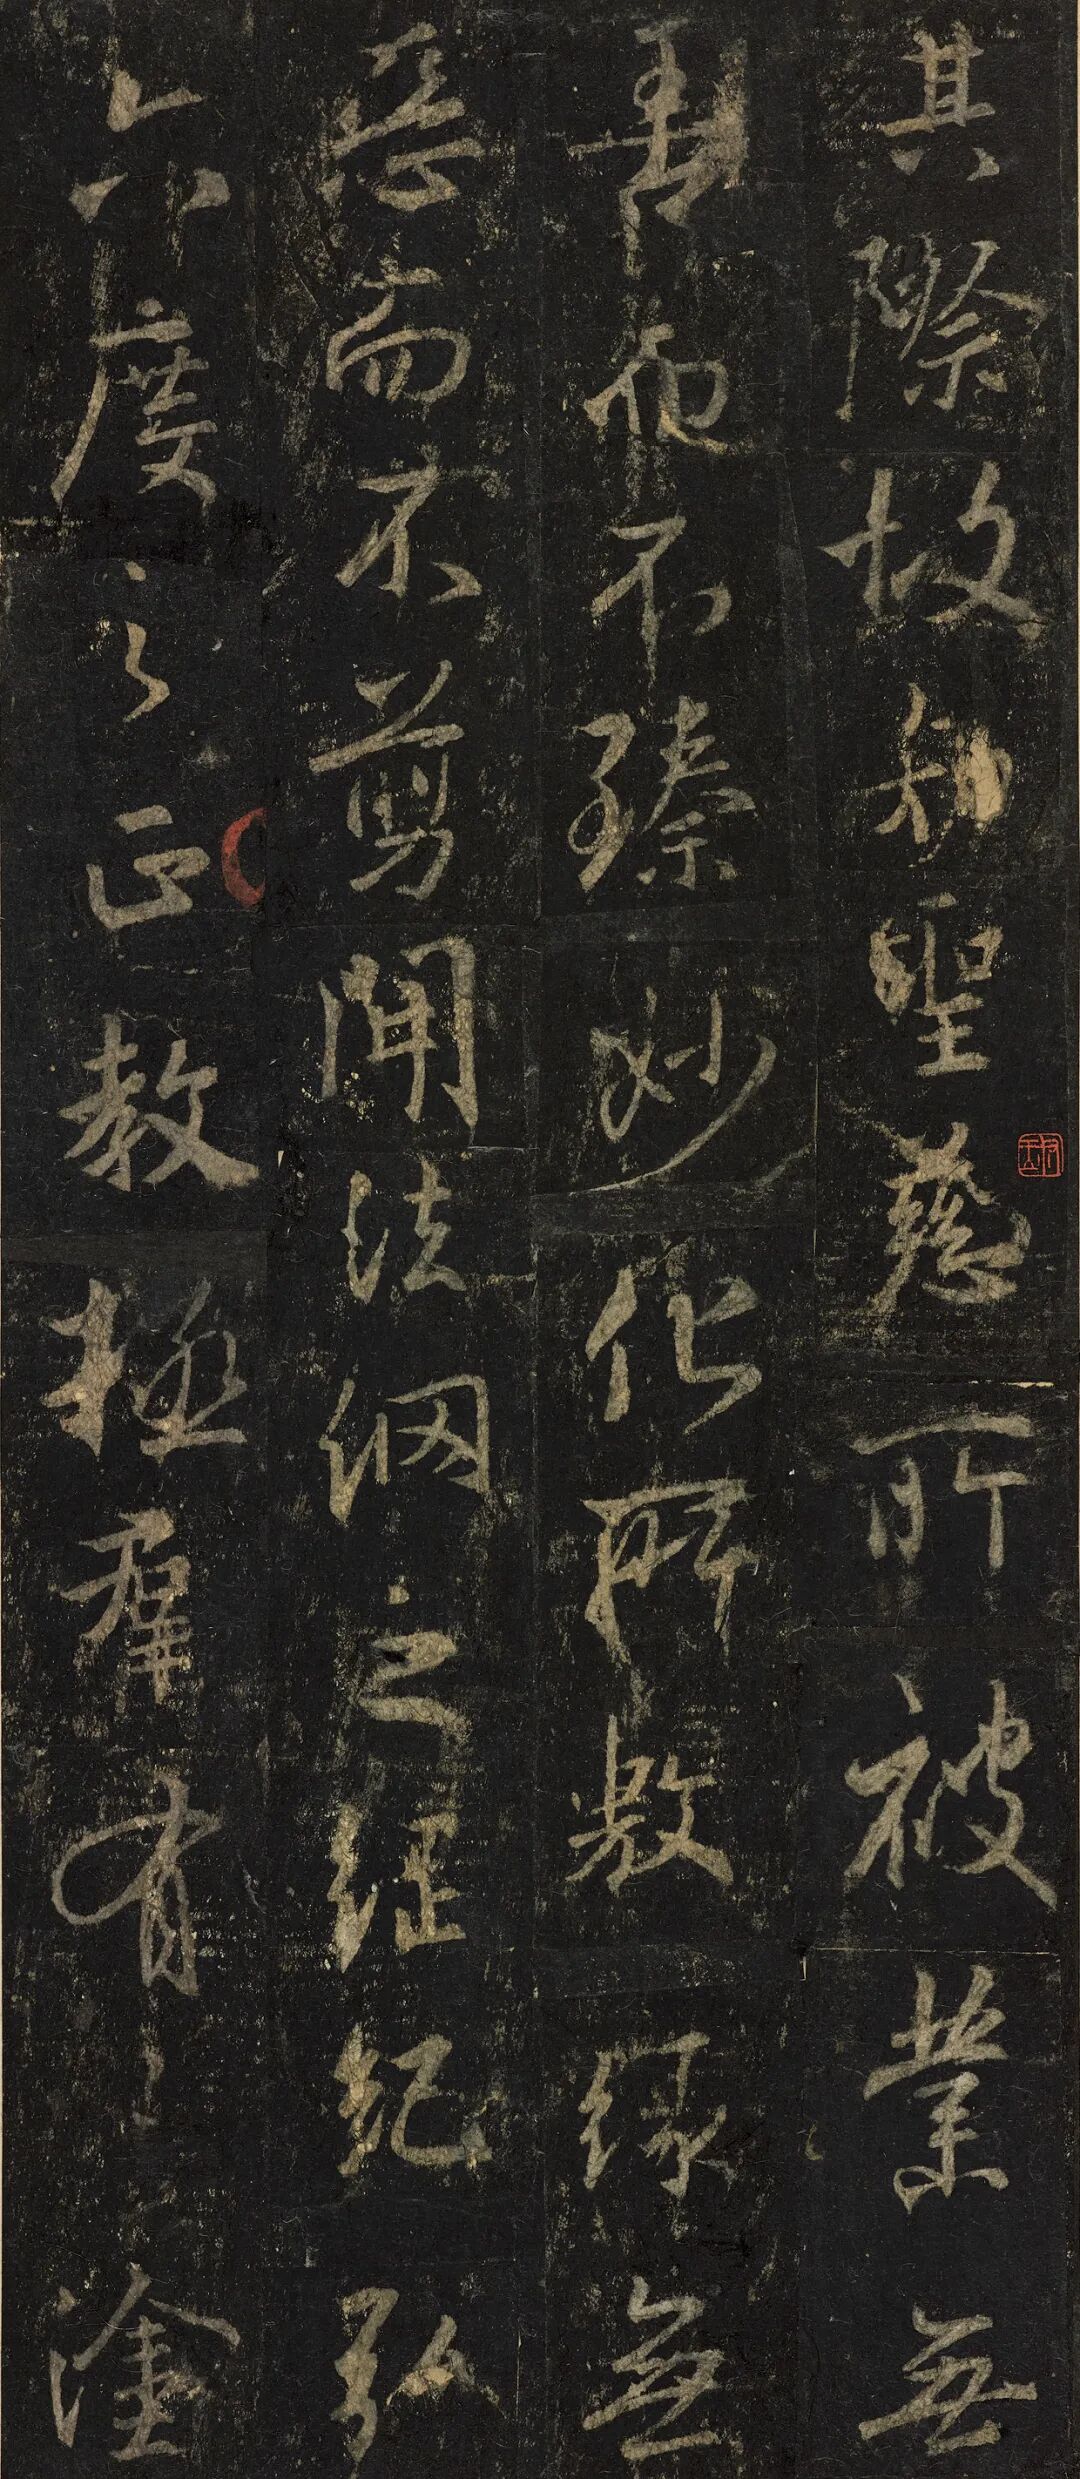 其際故知聖慈所被業無
善而不臻妙化所敷緣無
惡而不剪開法網之綱紀弘
六度之正教拯羣有之塗